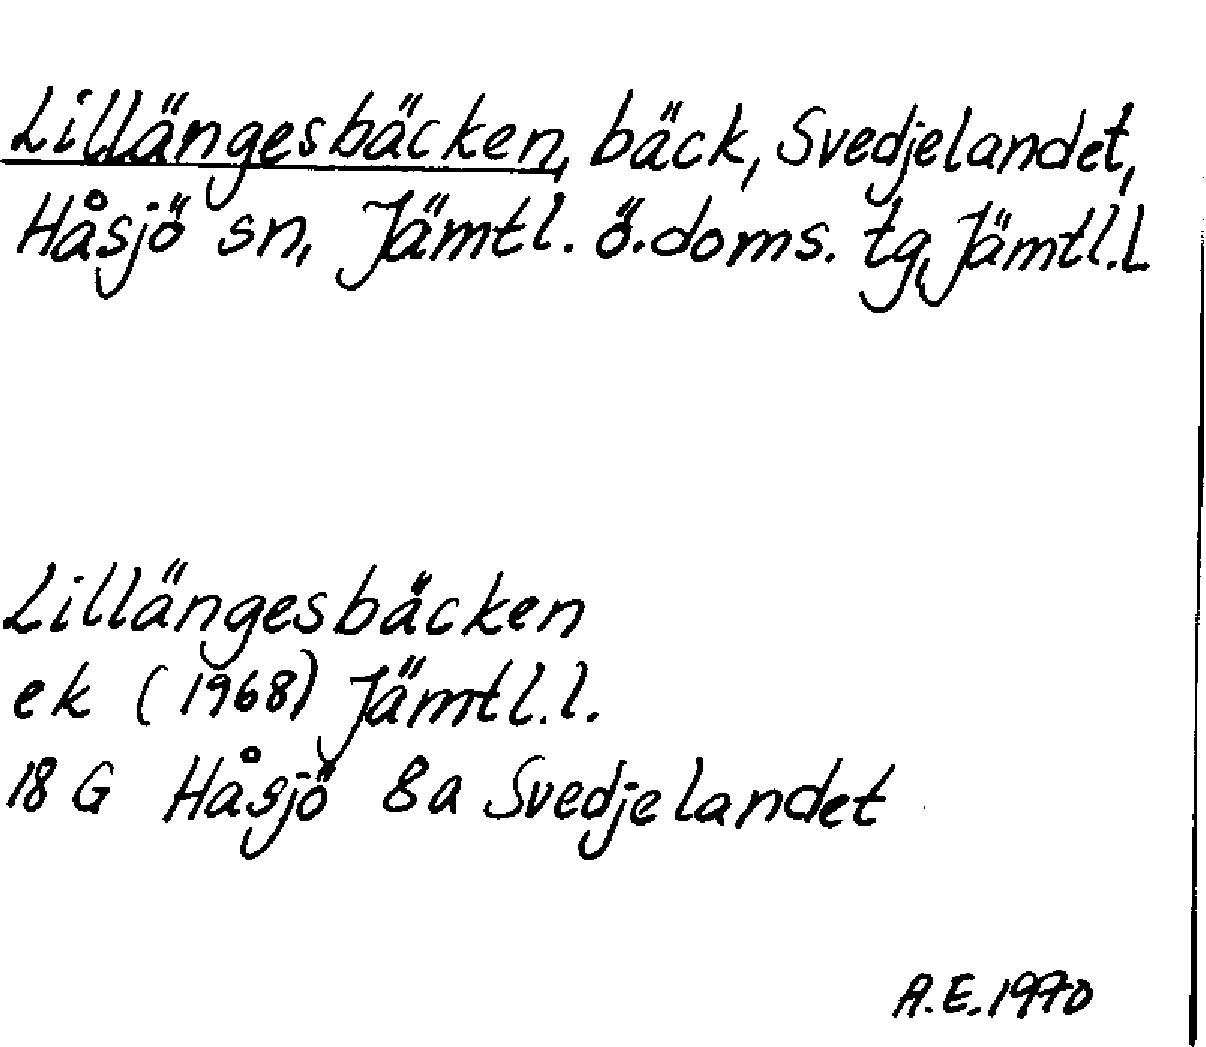 Lillängesbäcken, bäck, Svedjelandet,
Håsjö sn, Jämtl. ö. doms. tg, Jämtl. l.
Lillängesbäcken
ek (1968) Jämtl. l.
18 G Håsjö 8a Svedjelandet
A.E. 1970